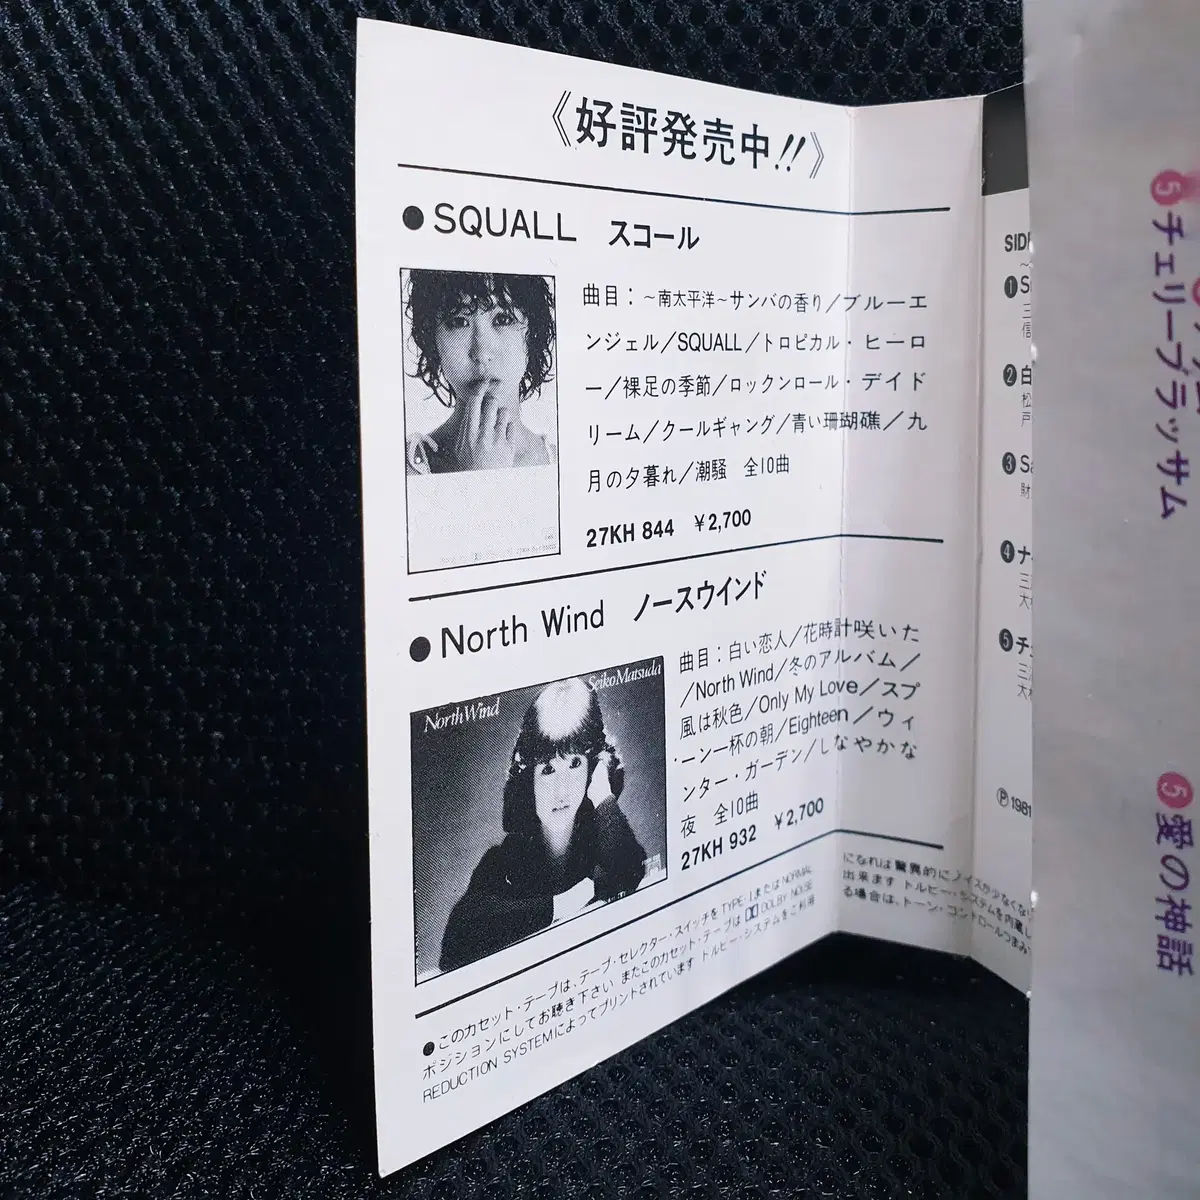 《好評発売中!!》
●SQUALL スコール
曲目：～南太平洋～サンバの香り／ブルーエ
ンジェル／SQUALL／トロピカル・ヒーロ
ー／裸足の季節／ロックンロール・デイド
リーム／クールギャング／青い珊瑚礁／九
月の夕暮れ／潮騒 全10曲
27KH 844 ￥2,700
●North Wind ノースウインド
North Wind
Seiko Matsuda
曲目：白い恋人／花時計咲いた
／North Wind／冬のアルバム／
風は秋色／Only My Love／スプ
ーン一杯の朝／Eighteen／ウィ
ンター・ガーデン／しなやかな
夜 全10曲
27KH 932 ￥2,700
●このカセット・テープは、テープ・セレクター・スイッチを TYPE-IまたはNORMAL
ポジションにしてお聴き下さい またこのカセット・テープは DOLBY NOISE
REDUCTION SYSTEMによってプリントされています ドルビー・システムをご利用
になれば驚異的にノイズが少なくな
出来ます ドルビー・システムを内蔵し
る場合は、トーン・コントロールつまみ
SIDE
❶S
三
信
❷白
松
戸
❸Sa
財
❹ナ
三
大
❺チ
三
大
Ⓟ1981
❺チェリーブラッサム
❺愛の神話